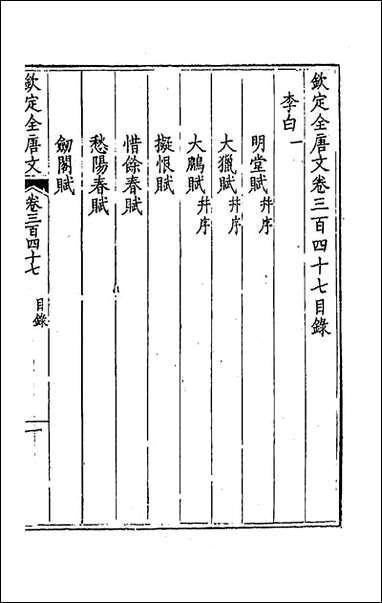 欽定全唐文卷三百四十七目錄
李白一
明堂賦并序
大獵賦并序
大鵬賦并序
擬恨賦
惜餘春賦
愁陽春賦
劒閣賦
欽定全唐文 卷三百四十七 目錄 一